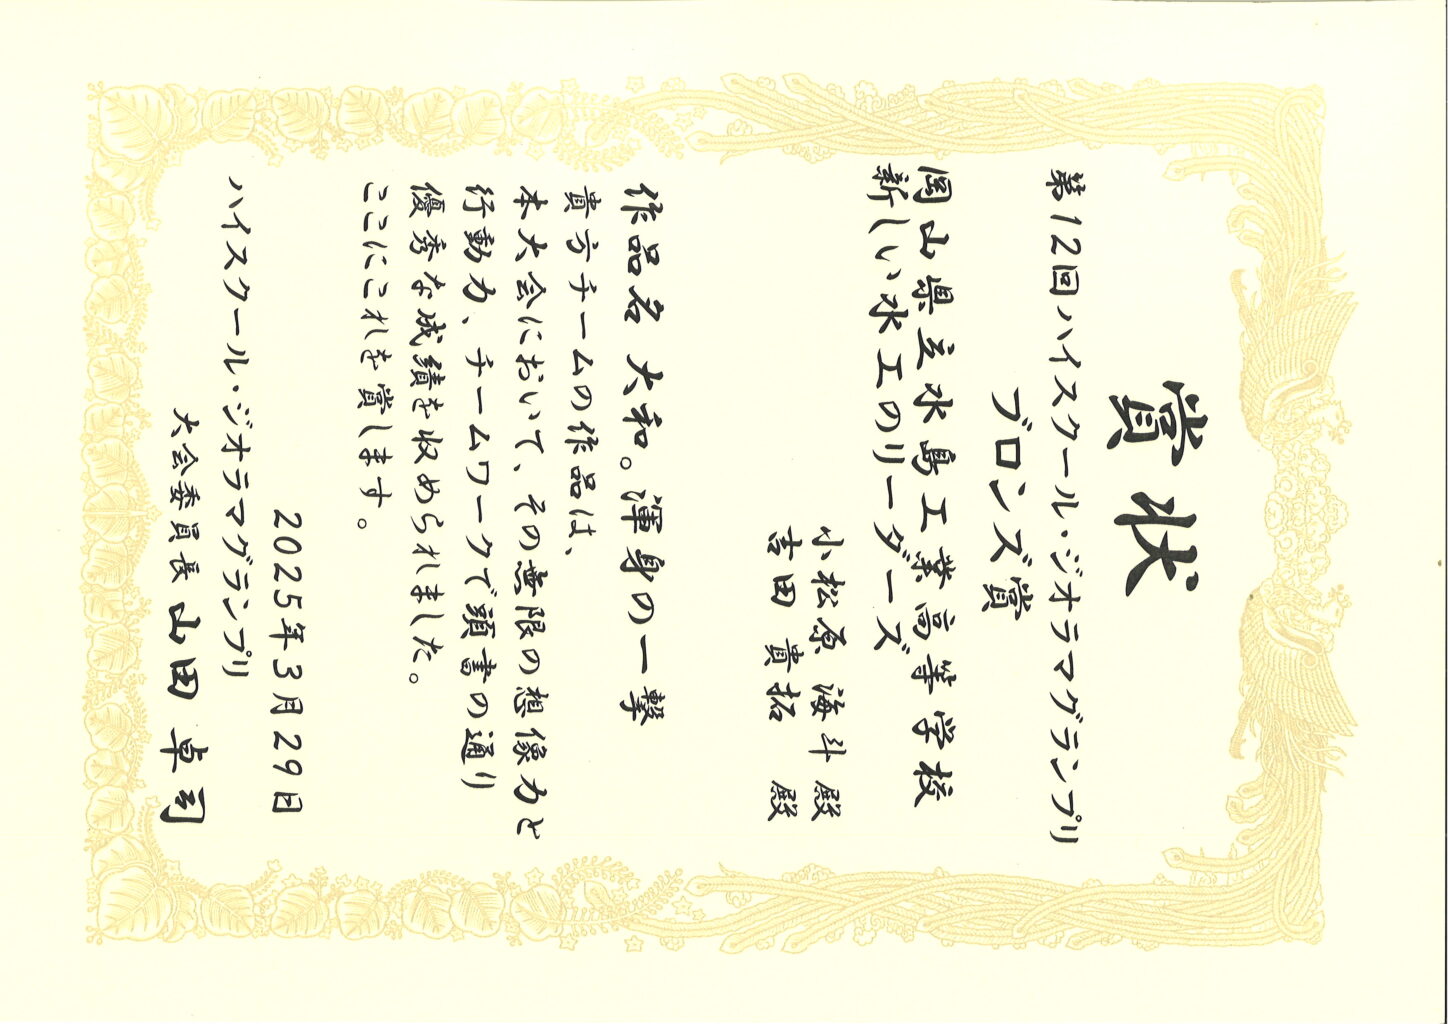 賞状
第12回ハイスクール・ジオラマグランプリ
ブロンズ賞
岡山県立水島工業高等学校
新しい水工のリーダーズ
小松原 海斗 殿
吉田 貴拓 殿
作品名 大和。渾身の一撃
貴方チームの作品は、
本大会において、その無限の想像力と
行動力、チームワークで頭書の通り
優秀な成績を収められました。
ここにこれを賞します。
2025年3月29日
ハイスクール・ジオラマグランプリ
大会委員長 山田 卓司